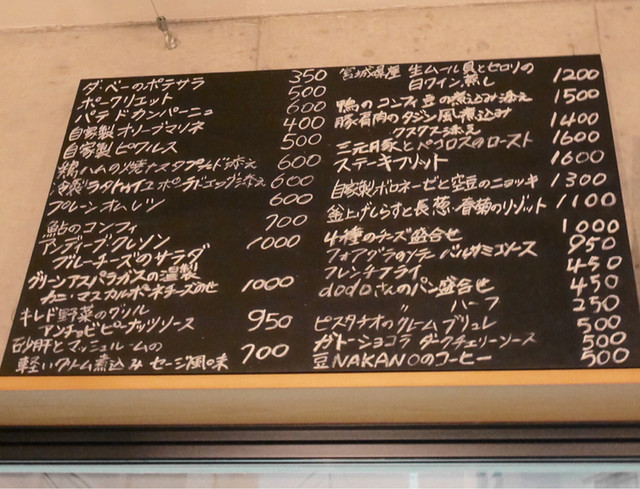 ダ・ベーのポテサラ 350
ポークリエット 500
パテ ド カンパーニュ 600
自家製オリーブマリネ 400
自家製ピクルス 500
鶏ハムの燻ナスタプナード添え 600
冷製ラタトゥイユ ポーチドエッグ添え 600
プレーンオムレツ 600
鮎のコンフィ 700
アンディーブ・クレソン
ブルーチーズのサラダ 1000
グリーンアスパラガスの温製
カニ・マスカルポーネチーズのせ 1000
キレド野菜のグリル
アンチョビピーナッツソース 950
砂肝とマッシュルームの
軽いクリーム煮込み セージ風味 700
宮城県産 生ムール貝とセロリの
白ワイン蒸し 1200
鴨のコンフィ 豆の煮込み添え 1500
豚肩肉のタジン風煮込み
クスクス添え 1400
三元豚とペコロスのロースト 1600
ステーキフリット 1600
自家製ボロネーゼと空豆のニョッキ 1300
釜上げしらすと長葱・春菊のリゾット 1100
4種のチーズ盛合せ 1000
フォアグラのソテー バルサミコソース 950
フレンチフライ 450
dodoさんのパン盛合せ 450
〃 ハーフ 250
ピスタチオのクレームブリュレ 500
ガトーショコラ ダークチェリーソース 500
豆NAKANOのコーヒー 500